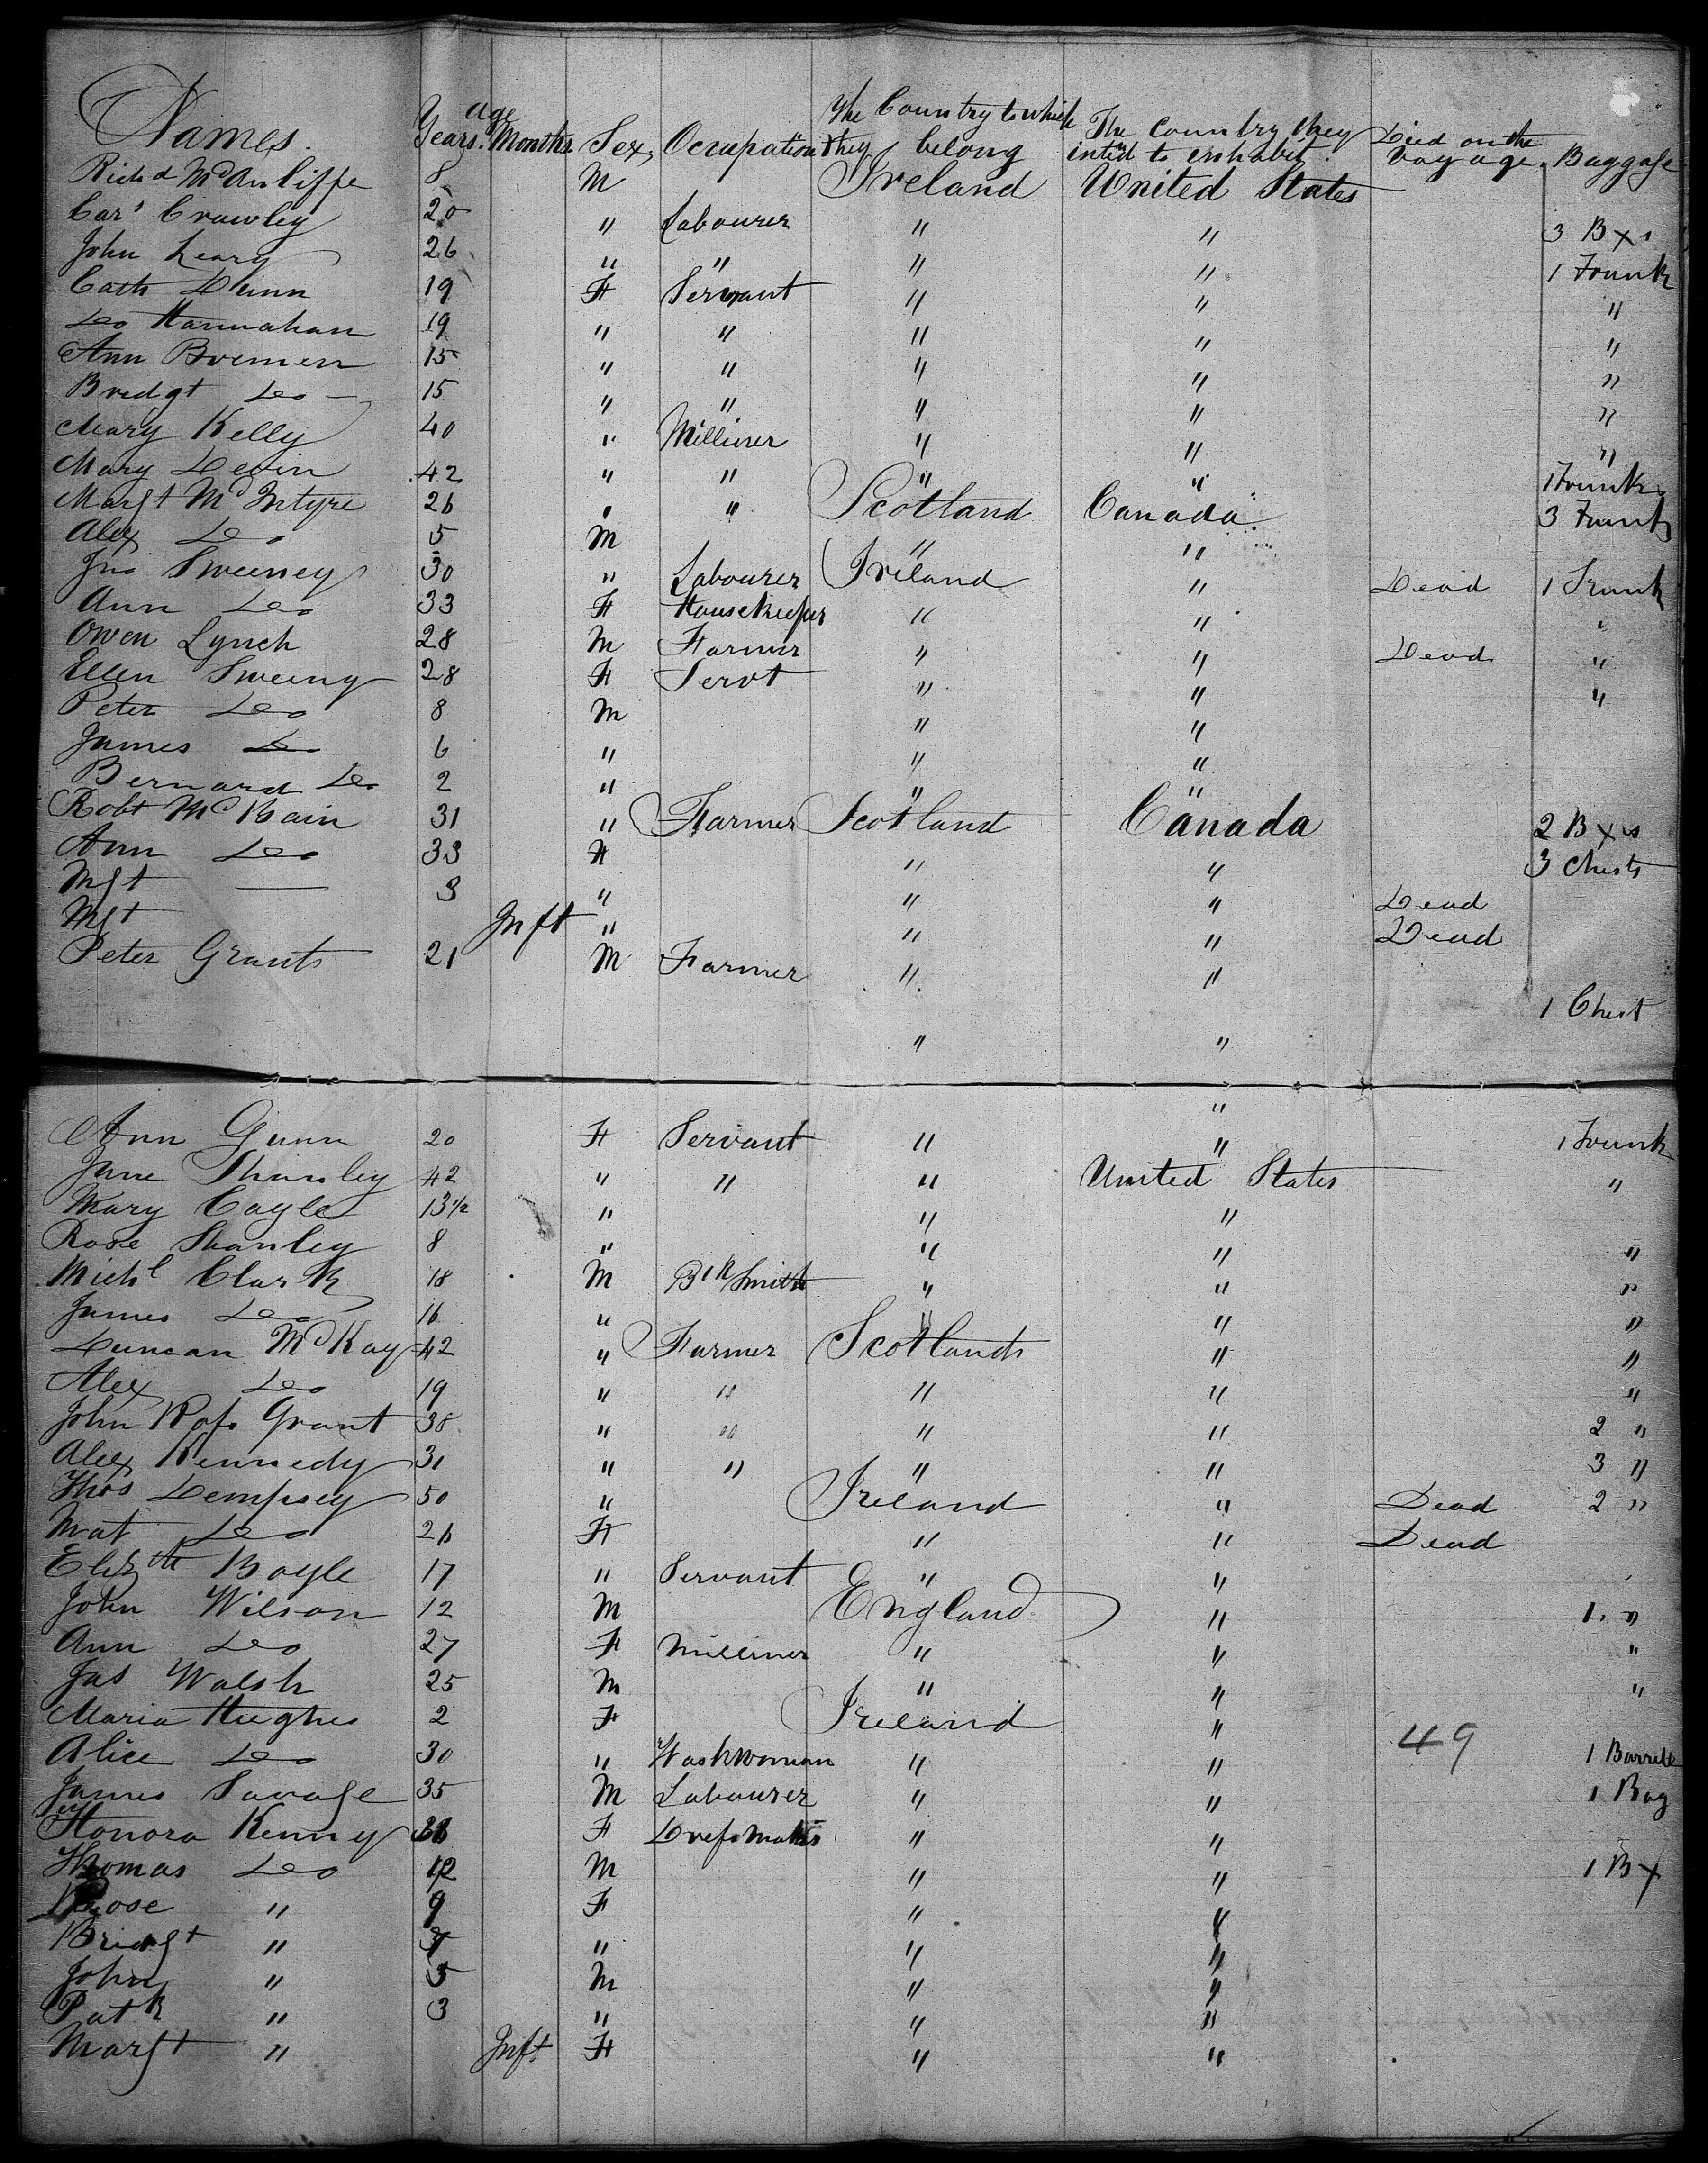 Names. Age Years. Months Sex Occupation The Country to which they belong The Country they intend to enhabit. Died on the voyage. Baggage
Richd McAuliffe 8 M Ireland United States
Cars Crowley 20 " Labourer " " 3 Bxs
John Leary 26 " " " " 1 Trunk
Cath Dunn 19 F Servant " " "
Do Hannahan 19 " " " " "
Ann Brennen 15 " " " " "
Bridgt Do 15 " " " " "
Mary Kelly 40 " Milliner " " "
Mary Devin 42 " " " " 1 Trunk
Margt McIntyre 26 " " Scotland Canada 3 Trunks
Alex Do 5 M " "
Jno Sweeney 30 " Labourer Ireland " Dead 1 Trunk
Ann Do 33 F Housekeeper " " "
Owen Lynch 28 M Farmer " " Dead "
Ellen Sweeny 28 F Servt " " "
Peter Do 8 M " "
James Do 6 " " "
Bernard Do 2 " " "
Robt McBain 31 " Farmer Scotland Canada 2 Bxs
Ann Do 33 F " " 3 Chests
Mgt — 3 " " " Dead
Mgt Inft " " " Dead
Peter Grants 21 M Farmer " "
1 Chest
" "
"
Ann Gunn 20 F Servant " " 1 Trunk
Jane Shanley 42 " " " United States "
Mary Cayle 13 1/2 " " "
Rose Shanley 8 " " " "
Michl Clark 18 M Blk Smith " " "
James Do 16 " " " "
Duncan McKay 42 " Farmer Scotlands " "
Alex Do 19 " " " " "
John Ross Grant 38 " " " " 2 "
Alex Kennedy 31 " " " " 3 "
Thos Dempsey 50 " Ireland " Dead 2 "
Mat Do 26 F " " Dead
Elizth Boyle 17 " Servant " "
John Wilson 12 M England " 1 "
Ann Do 27 F Milliner " " "
Jas Walsh 25 M " " "
Maria Hughes 2 F Ireland "
Alice Do 30 " Washwoman " " 49 1 Barrell
James Savage 35 M Labourer " " 1 Bag
Honora Kenny F Dressmaker " "
Thomas Do 12 M " " 1 Bx
Rose " 9 F " "
Bridgt " " " "
John " 5 M " "
Patk " 3 " " "
Margt " Inft F " "